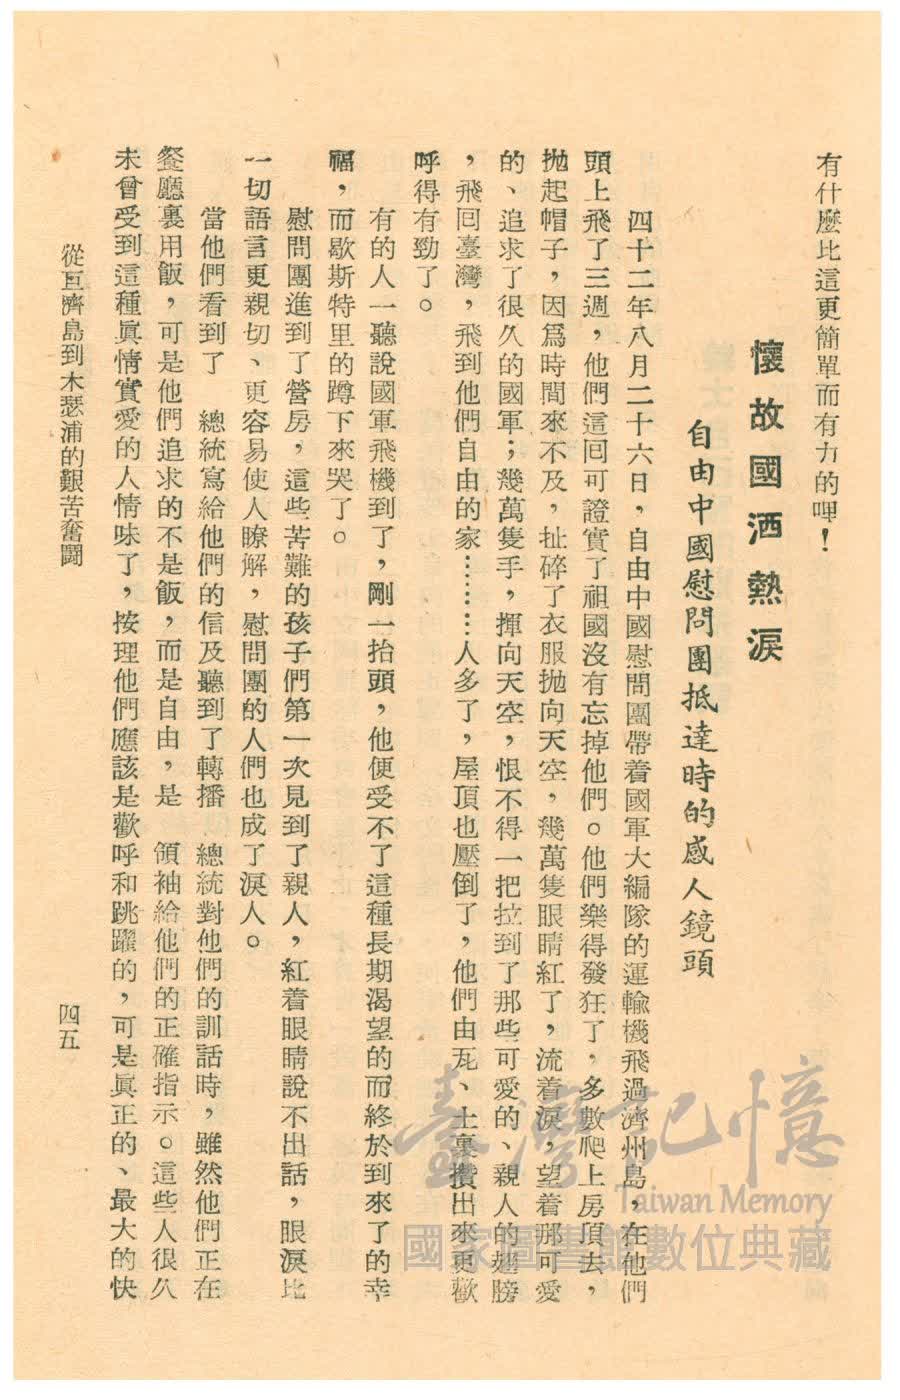 有什麼比這更簡單而有力的呷！
懷故國洒熱淚
自由中國慰問團抵達時的感人鏡頭
四十二年八月二十六日，自由中國慰問團帶着國軍大編隊的運輸機飛過濟州島，在他們
頭上飛了三週，他們這回可證實了祖國沒有忘掉他們。他們樂得發狂了，多數爬上房頂去，
拋起帽子，因爲時間來不及，扯碎了衣服拋向天空，幾萬隻眼睛紅了，流着淚，望着那可愛
的、追求了很久的國軍；幾萬隻手，揮向天空，恨不得一把拉到了那些可愛的、親人的翅膀
，飛回臺灣，飛到他們自由的家………人多了，屋頂也壓倒了，他們由瓦、土裏攢出來更歡
呼得有勁了。
有的人一聽說國軍飛機到了，剛一抬頭，他便受不了這種長期渴望的而終於到來了的幸
福，而歇斯特里的蹲下來哭了。
慰問團進到了營房，這些苦難的孩子們第一次見到了親人，紅着眼睛說不出話，眼淚比
一切語言更親切、更容易使人瞭解，慰問團的人們也成了淚人。
當他們看到了　總統寫給他們的信及聽到了轉播　總統對他們的訓話時，雖然他們正在
餐廳裏用飯，可是他們追求的不是飯，而是自由，是　領袖給他們的正確指示。這些人很久
未曾受到這種眞情實愛的人情味了，按理他們應該是歡呼和跳躍的，可是眞正的、最大的快
從巨濟島到木瑟浦的艱苦奮鬪
四五
臺灣記憶
Taiwan Memory
國家圖書館數位典藏